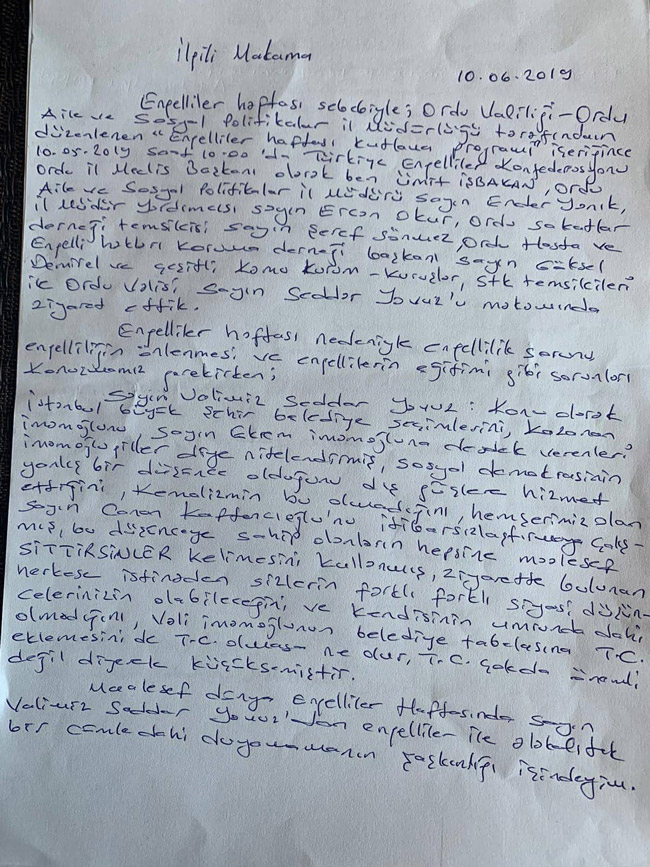 İlgili Makama
10.06.2019
Engelliler haftası sebebiyle; Ordu Valiliği - Ordu
Aile ve Sosyal Politikalar il Müdürlüğü tarafından
düzenlenen "Engelliler haftası kutlama programı" içeriğince
10.05.2019 saat 10:00'da Türkiye Engelliler Konfederasyonu
Ordu il Meclis Başkanı olarak ben Ümit İŞBAKAN, Ordu
Aile ve Sosyal Politikalar il Müdürü Sayın Ender Yanık,
il Müdür Yardımcısı sayın Ercan Okur, Ordu sakatlar
derneği temsilcisi sayın Şeref Sönmez, Ordu Hasta ve
Engelli hakları koruma derneği başkanı sayın Göksel
Demirel ve çeşitli Kamu Kurum - Kuruluşlar, stk temsilcileri
ile Ordu Valisi, Sayın Seddar Yavuz'u makamında
ziyaret ettik.
Engelliler haftası nedeniyle engellilik sorunu
engelliliğin önlenmesi ve engellilerin eğitimi gibi sorunları
konuşmamız gerekirken;
Sayın Valimiz Seddar Yavuz: Konu olarak
İstanbul büyük şehir belediye seçimlerini, kazanan
imamoğlunu, Sayın Ekrem imamoğluna destek verenleri
imamoğlugiller diye nitelendirmiş, sosyal demokrasinin
yanlış bir düşünce olduğunu dış güçlere hizmet
ettiğini, Kendimizin bu olmadığını, hemşerimiz olan
sayın Canan Kaftancıoğlu'nu itibarsızlaştırmaya çalış-
mış, bu düşünceye sahip olanların hepsine maalesef
SİTTİRSİNLER kelimesini kullanmış, ziyarette bulunan
herkese istinaden sizlerin farklı farklı siyasi düşün-
celerinizin olabileceğini ve kendisinin umrunda dahi
olmadığını, Vali imamoğlunun belediye tabelasına T.C.
eklemesini de T.C. olmasa ne olur, T.C. çokda önemli
değil diyerek küçüksemiştir.
Maalesef dünya engelliler Haftasında sayın
Valimiz Seddar Yavuz'dan engelliler ile alakalı tek
bir cümle dahi duyamamanın şaşkınlığı içindeyim.